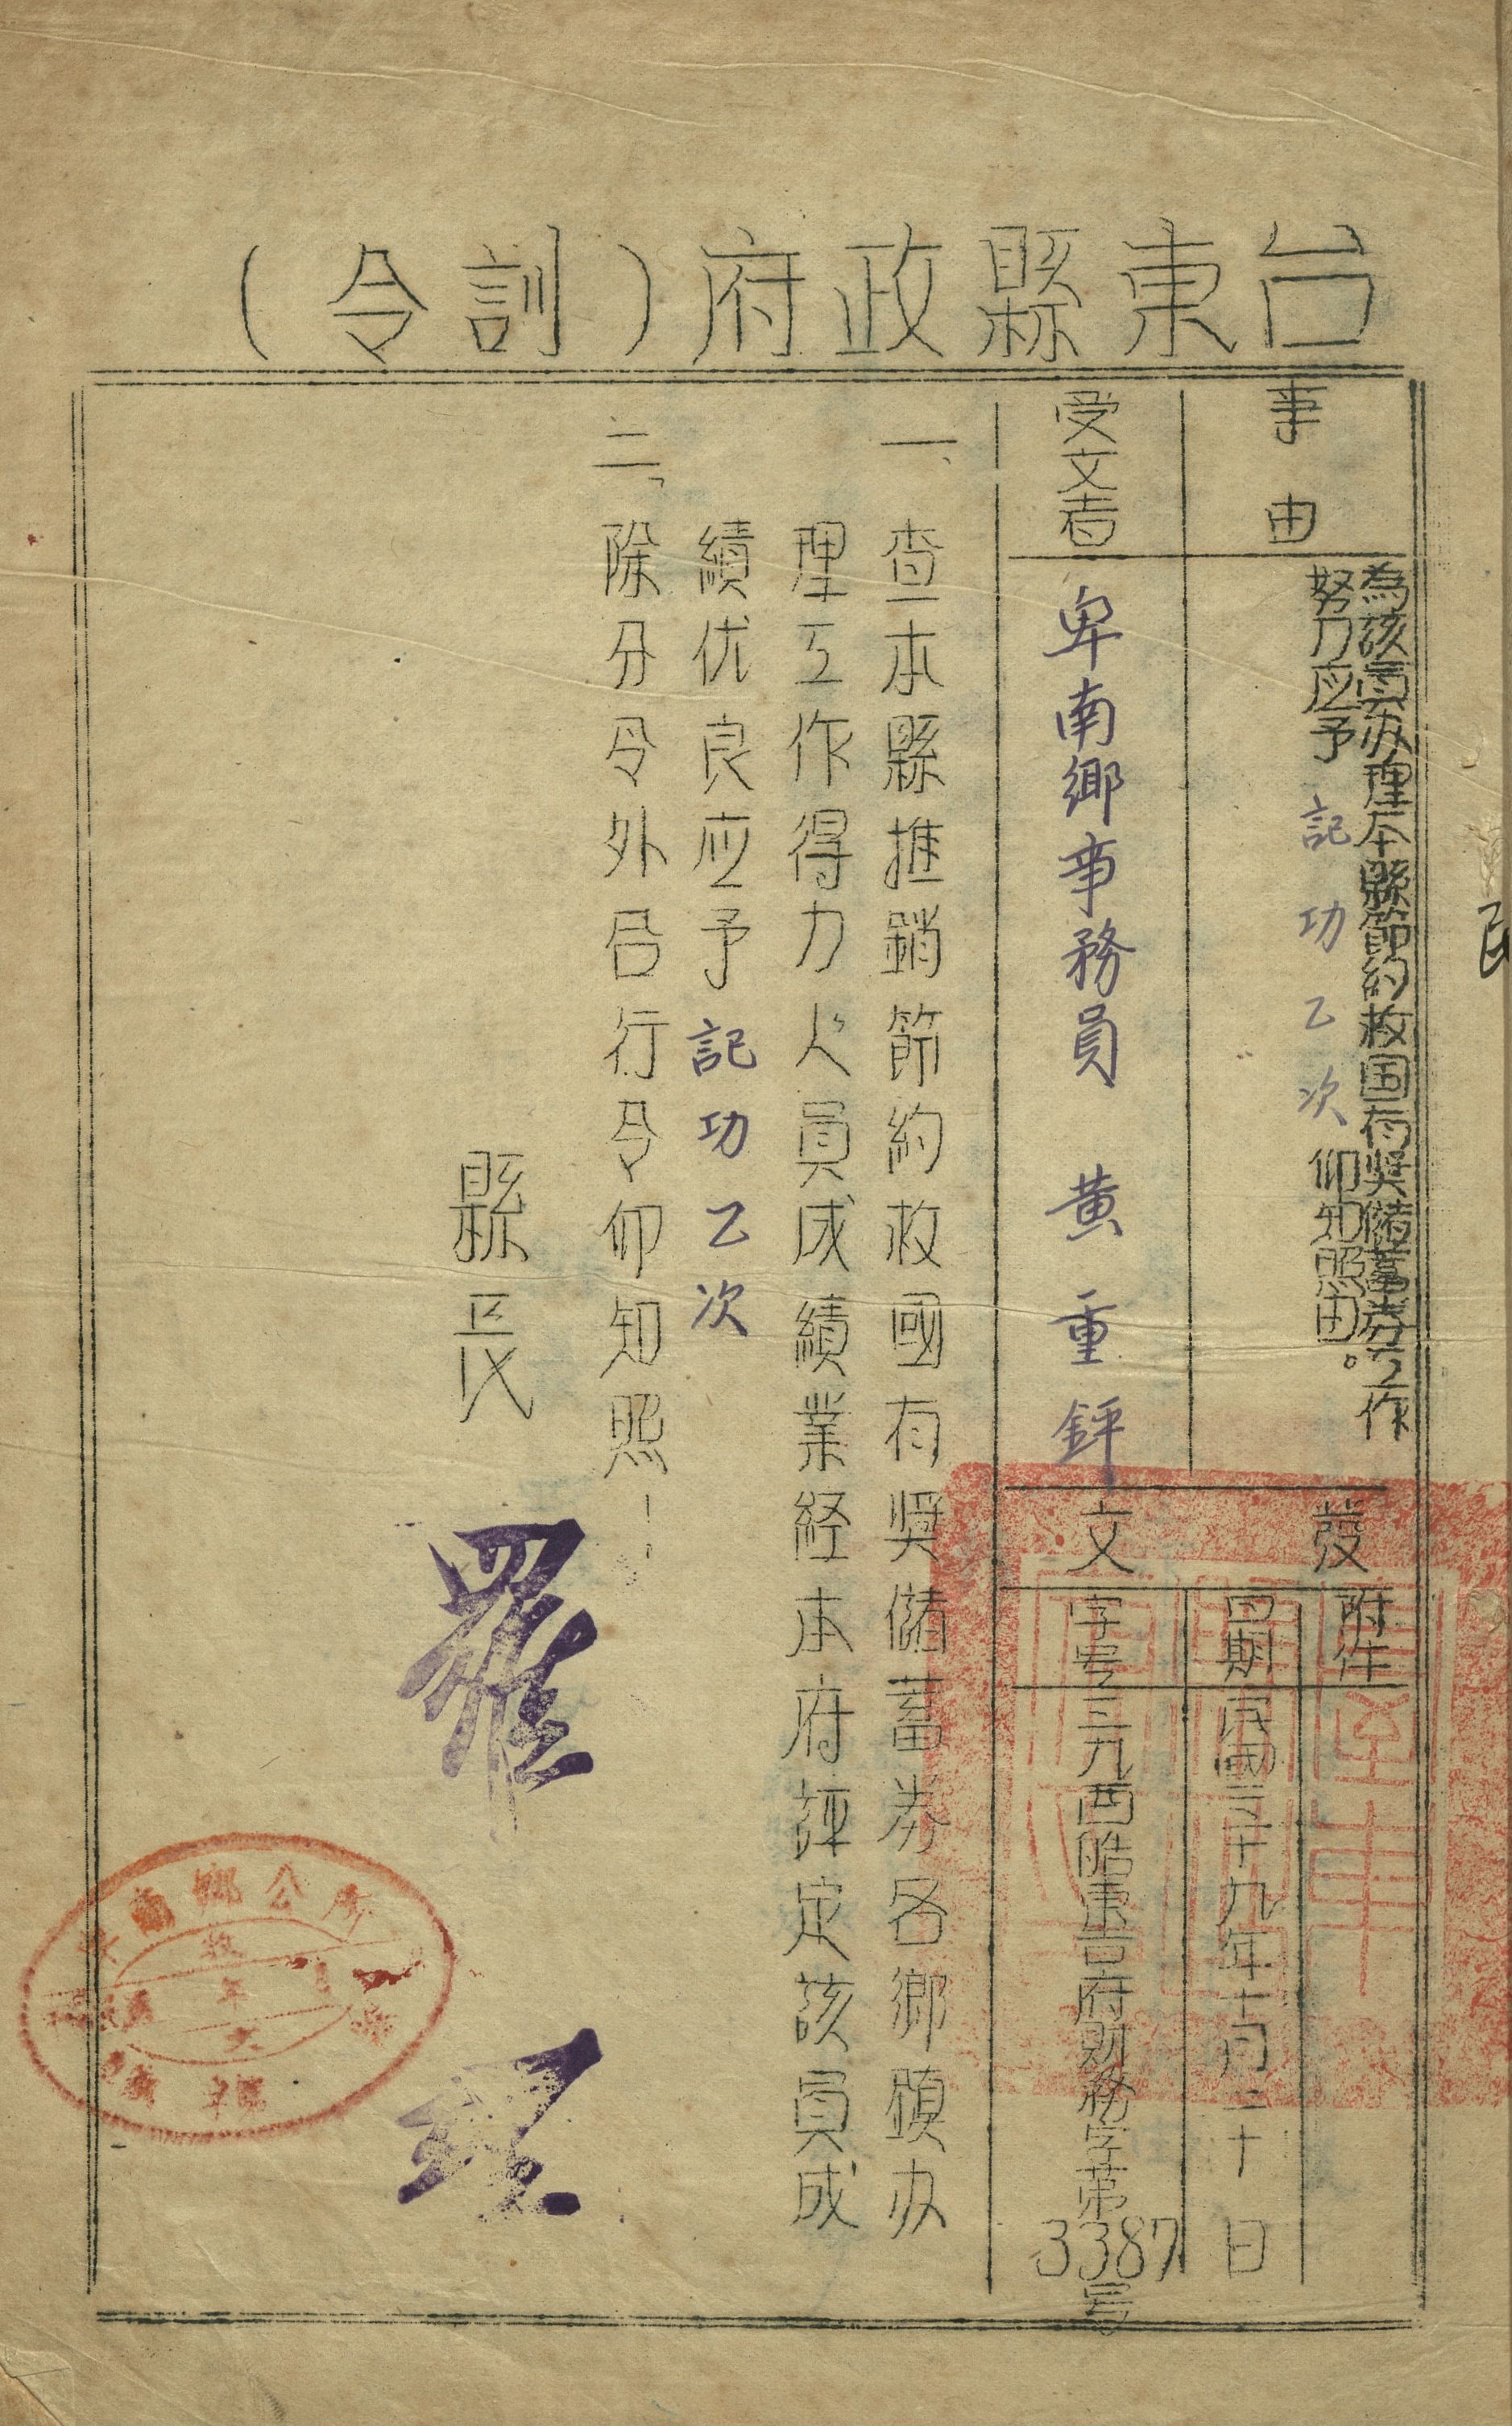 台東縣政府(訓令)
事由
為該員办理本縣節約救国有奨儲蓄券工作
努力应予記功乙次仰知照由。
受文者
卑南鄉事務員 黃重鈃
發文
附件
日期
民國三十九年十二月二十日
字号
三九酉皓東吉府財務字第3387号
一、查本縣推銷節約救國有奨儲蓄券各鄉鎮办
理工作得力人員成績業経本府評定該員成
績优良应予記功乙次
二、除分令外合行令仰知照！
縣長 羅
鄉公所